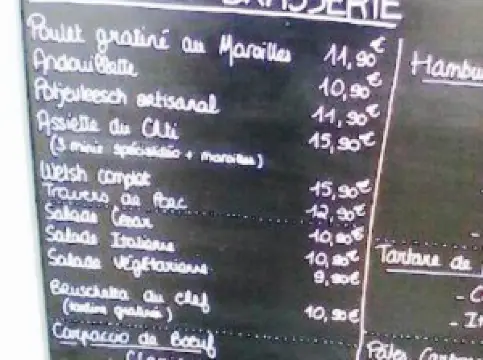 BRASSERIE
Poulet gratiné au Maroilles 11,90€
Andouillette 10,90€
Potjevleesch artisanal 11,90€
Assiette du Chti 15,90€
(3 minis spécialités + maroilles)
Welsh complet 15,90€
Travers de Porc 12,90€
Salade César 10,90€
Salade Italienne 10,90€
Salade Végétarienne 9,90€
Bruschetta du chef 10,90€
(tartine gratinée)
Carpaccio de Boeuf
Hambu
Tartare de
- C
- It
Pâtes Carbon